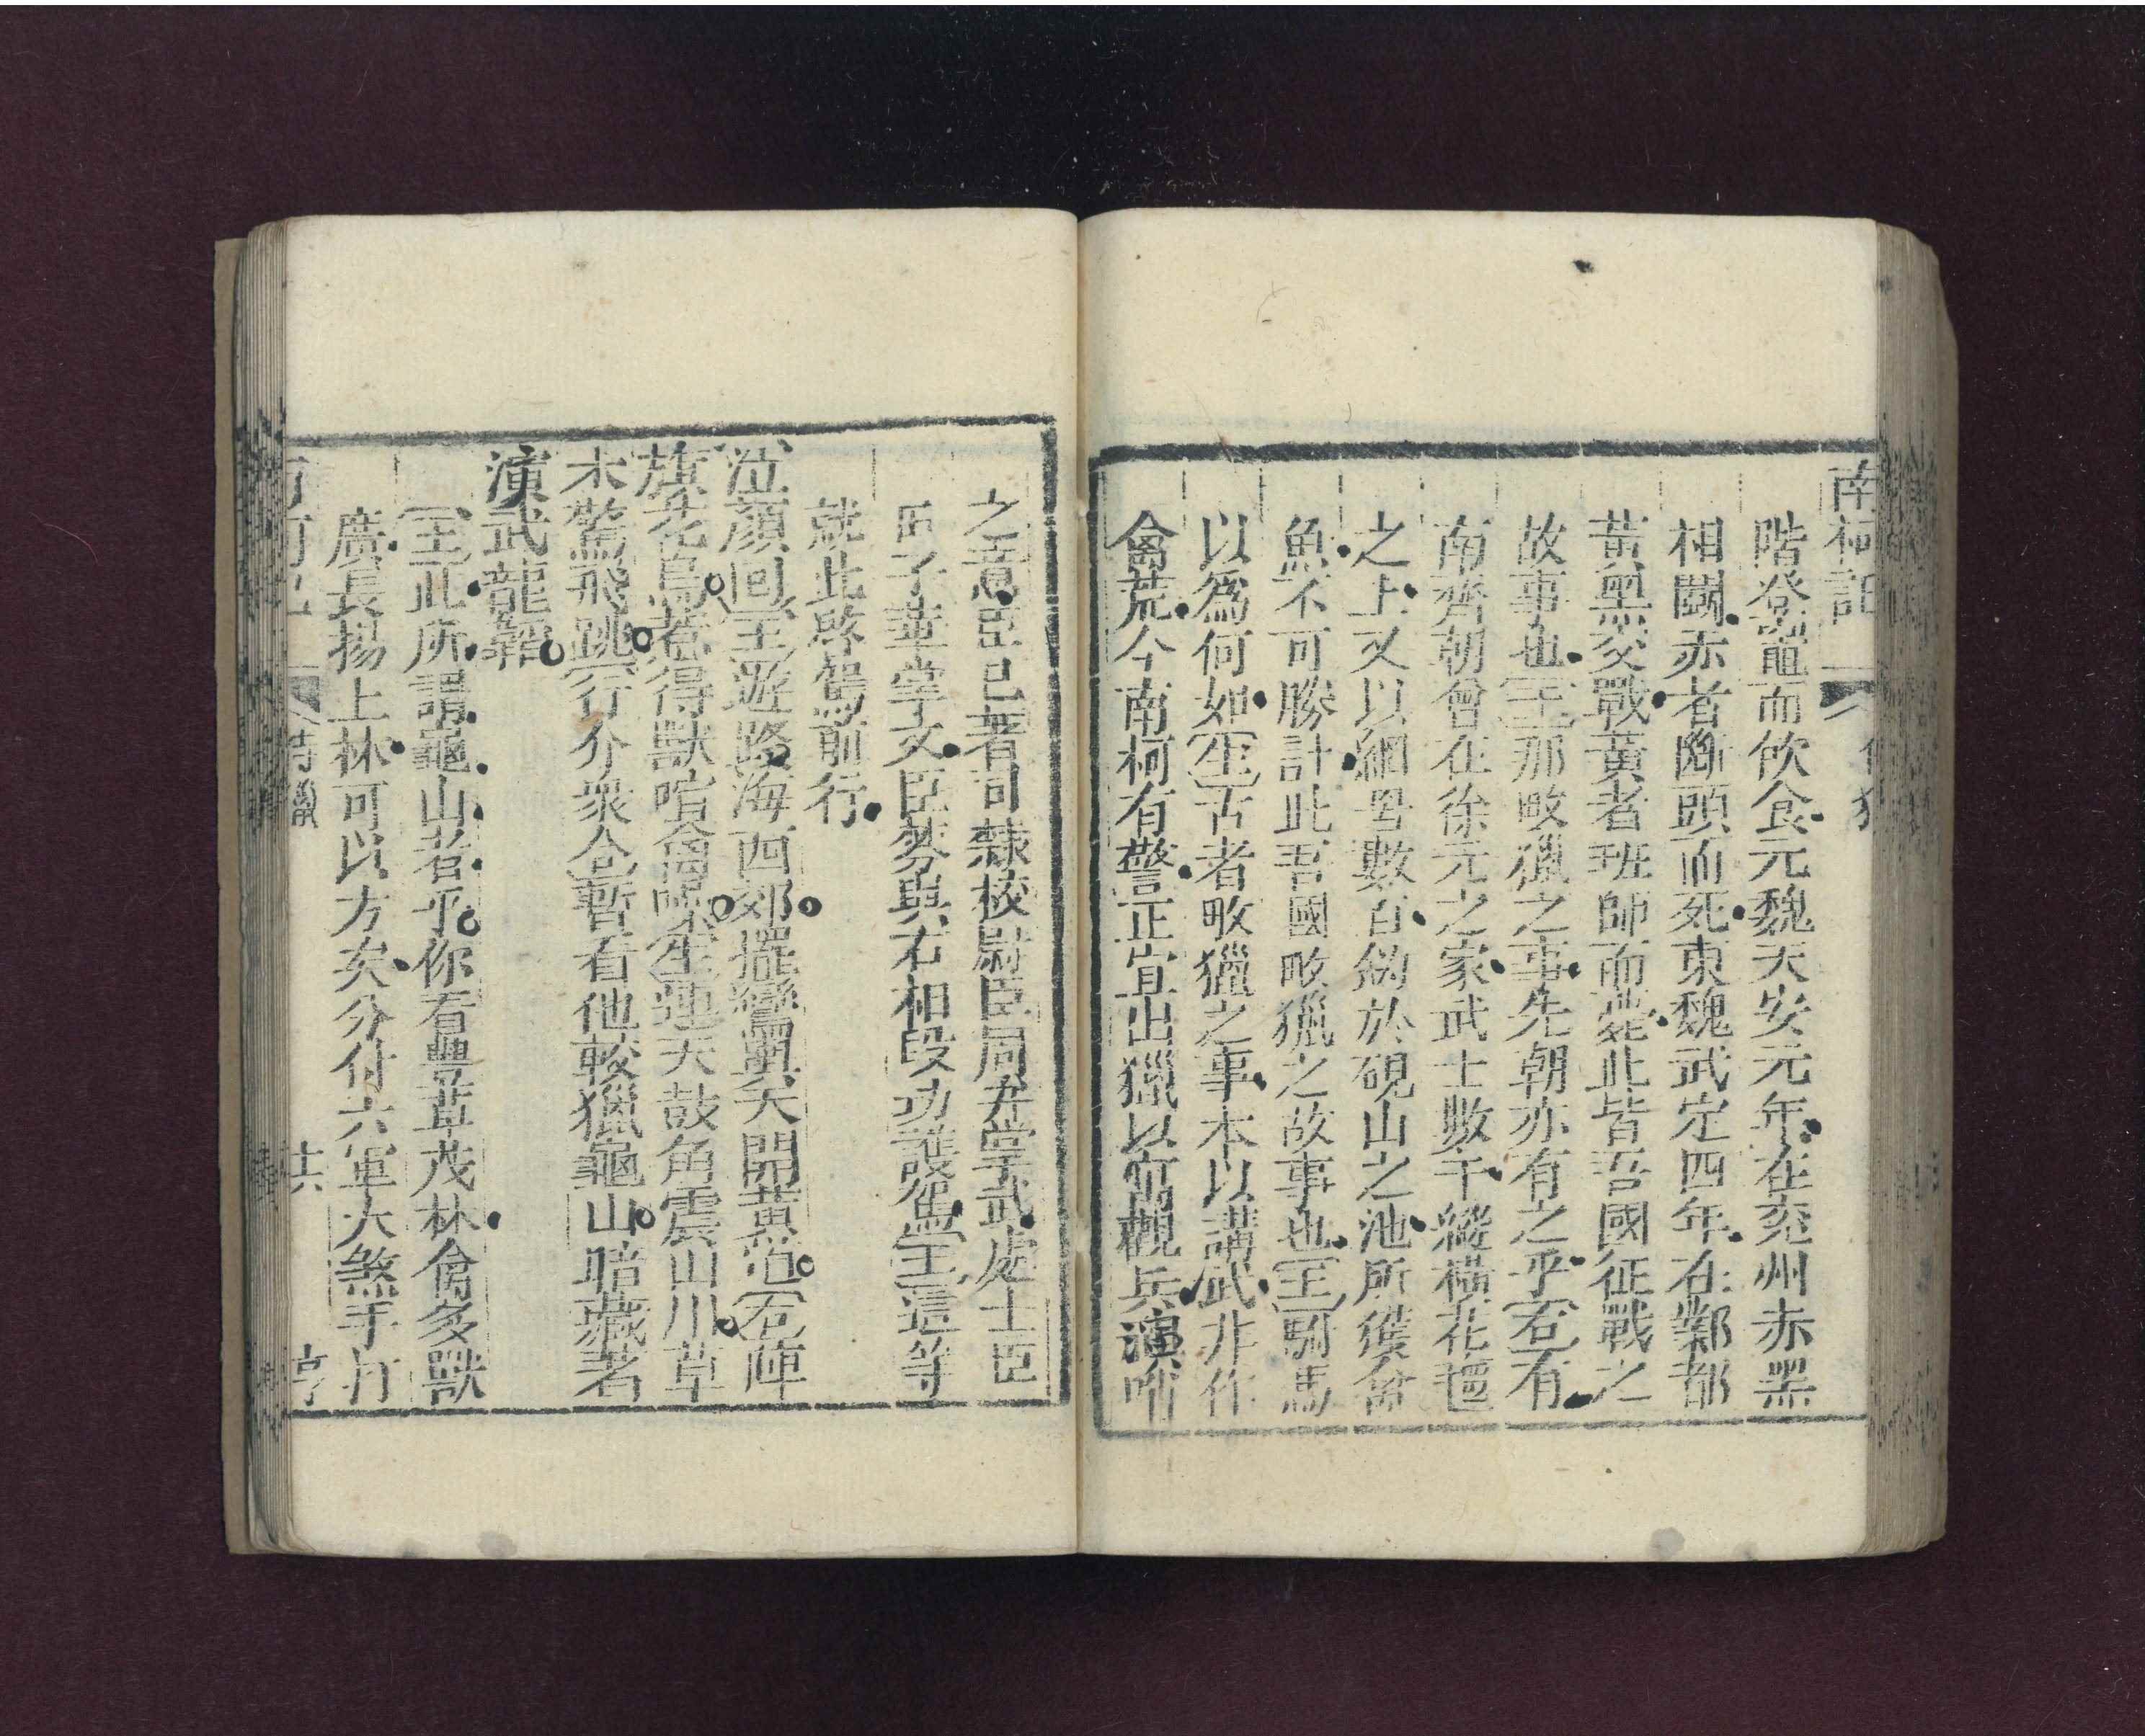 南柯記
階登竈而飲食元魏天安元年在兗州赤黑
相鬬赤者斷頭而死東魏武定四年在鄴都
黃黑交戰黃者班師而斃此皆吾國征戰之
故事也王那畋獵之事先朝亦有之乎右有
南齊朝曾在徐元之家武士數千縱橫花氊
之上又以網罟數百釣於硯山之池所獲禽
魚不可勝計此吾國畋獵之故事也王駙馬
以爲何如生古者畋獵之事本以講武非作
禽荒今南柯有警正宜出獵以觀兵演哨
之意臣已著司隸校尉臣同弁掌武處士臣
田子華掌文臣等與右相段功護駕王這等
就此啓駕前行
泣顏回王遊路海西郊擺鸞輿天開黃道右陣
旗花鳥惹得獸喧禽噪生連天鼓角震山川草
木驚飛跳行介衆合暫看他較獵龜山暗藏着
演武龍韜
王此所謂龜山者乎你看豐草茂林禽多獸
廣長揚上林可以方矣分付六軍大煞手打
侍獵
共
亨